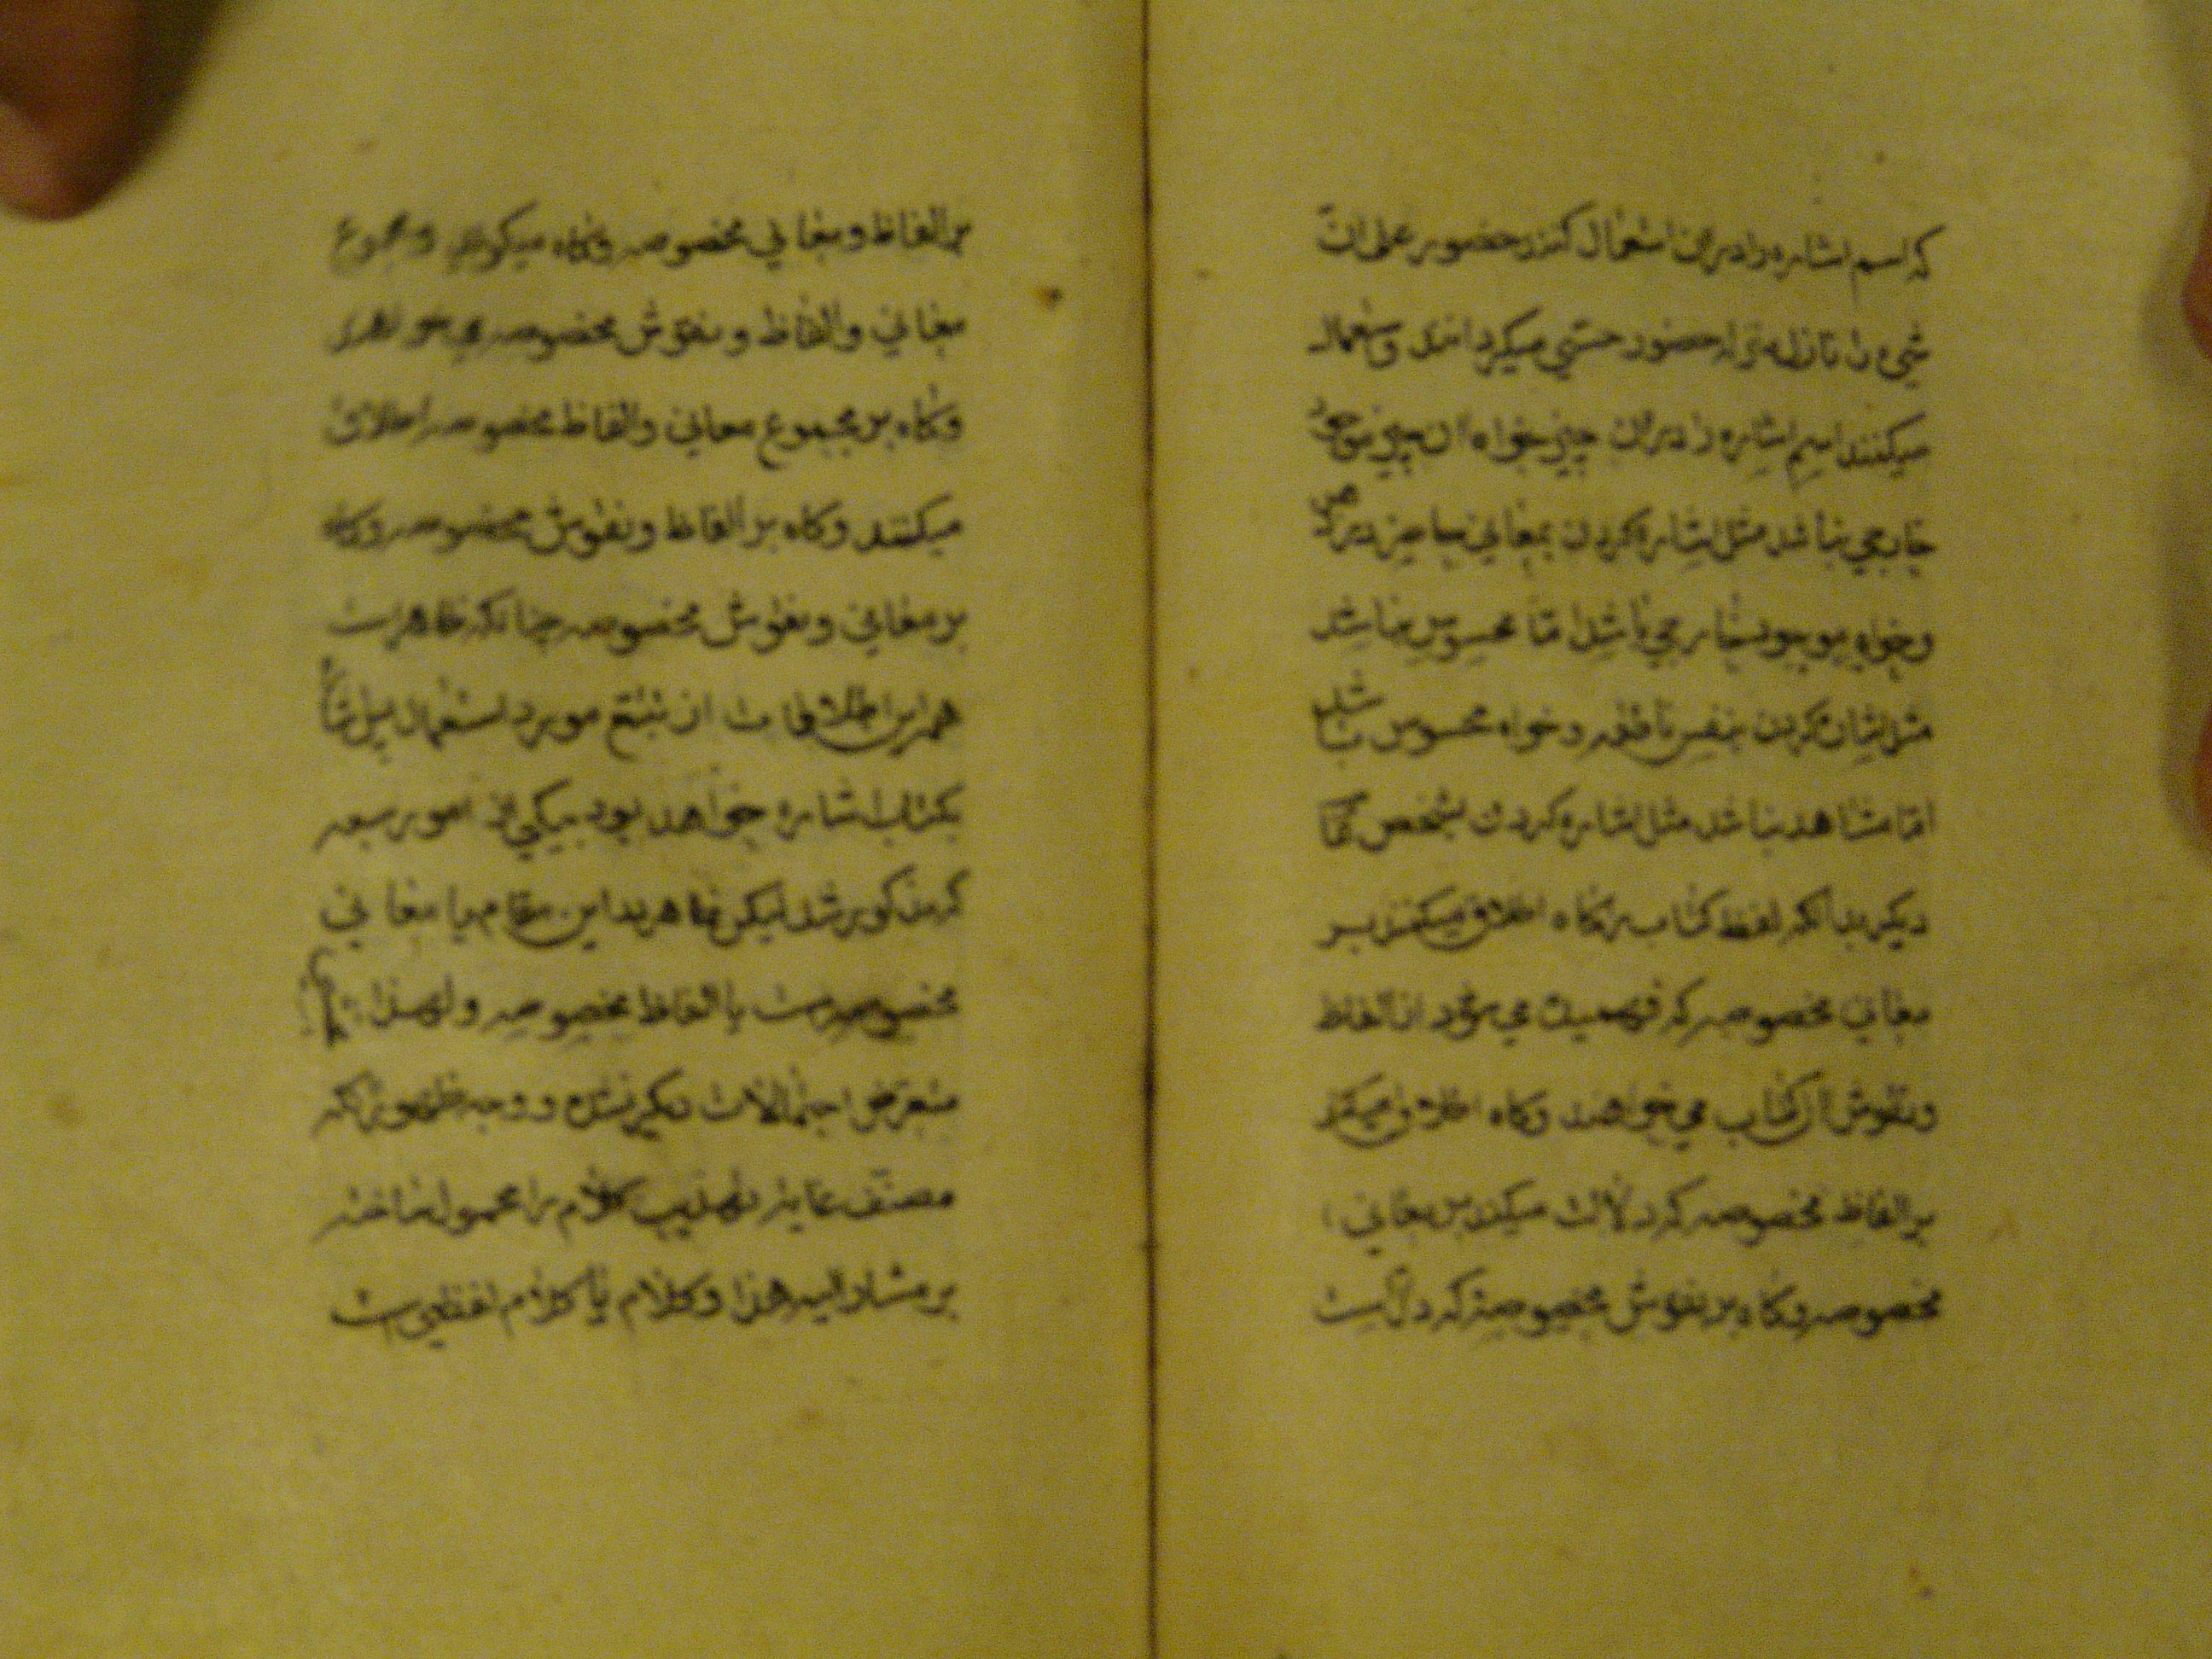 که اسم اشاره را در ان استعمال کنند حضور علمی ان
شیء را نازل منزله حضور حسی میکردانند و استعمال
میکنند اسم اشاره را در ان چیز خواه ان چیز موجود
خارجی نباشد مثل اشاره کردن بمعانی حاضره در ذهن
وخواه موجود خارجی باشد اما محسوس نباشد
مثل اشاره کردن بنفس ناطقه و خواه محسوس باشد
اما مشاهد نباشد مثل اشاره کردن بشخص
دیکر بدانکه لفظ کتاب را کاه اطلاق میکنند بر
معانی مخصوصه که فهمیده می شود از الفاظ
ونقوش ان کتاب می خواهند وکاه اطلاق میکنند
بر الفاظ مخصوصه که دلالت میکند بر معانی
مخصوصه وکاه بر نقوش مخصوصه که دالست
بر الفاظ ومعانی مخصوصه وکاه میکویند ومجموع
معانی والفاظ ونقوش مخصوصه می خواهند
وکاه بر مجموع معانی والفاظ مخصوصه اطلاق
میکنند وکاه بر الفاظ ونقوش مخصوصه وکاه
بر معانی ونقوش مخصوصه چنانکه ظاهرست
همه این اطلاقات از تتبع موارد استعمال پس
بکتاب اشاره خواهد بود بیکی از امور سبعه
که مذکور شد لیکن ظاهر بداین مقام یا معانی
مخصوصه است یا الفاظ مخصوصه ولهذا
متعرض احتمالات دیکر نشده ووجه ظهور انکه
مصنف غایة تهذیب کلام را محمول ساخته
بر مشار الیه هذا وکلام یا کلام لفظی است